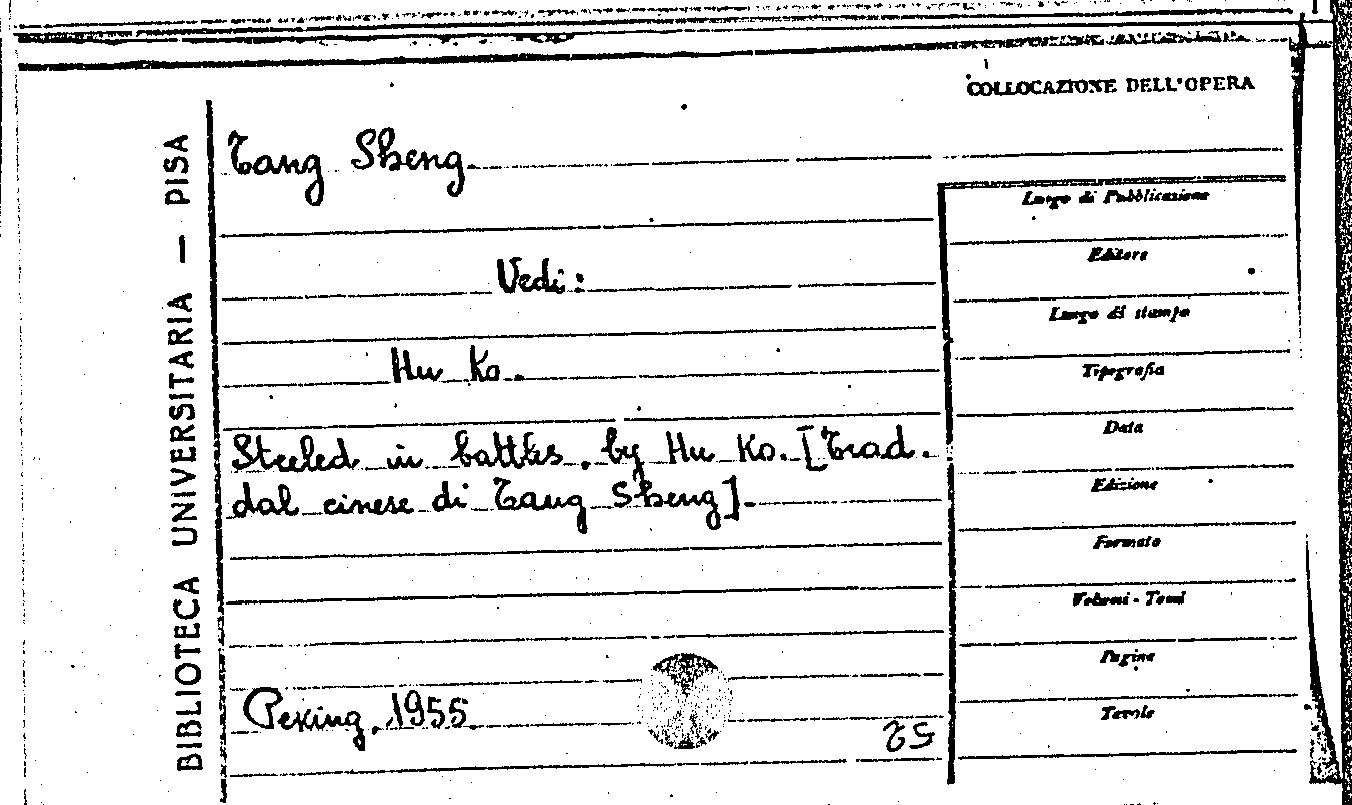 COLLOCAZIONE DELL'OPERA
BIBLIOTECA UNIVERSITARIA — PISA
Tang Sheng.
Vedi:
Hu Ko.
Steeled in battles, by Hu Ko. [Trad.
dal cinese di Tang Sheng].
Peking, 1955
Luogo di Pubblicazione
Editore
Luogo di stampa
Tipografia
Data
Edizione
Formato
Volumi - Tomi
Pagine
Tavole